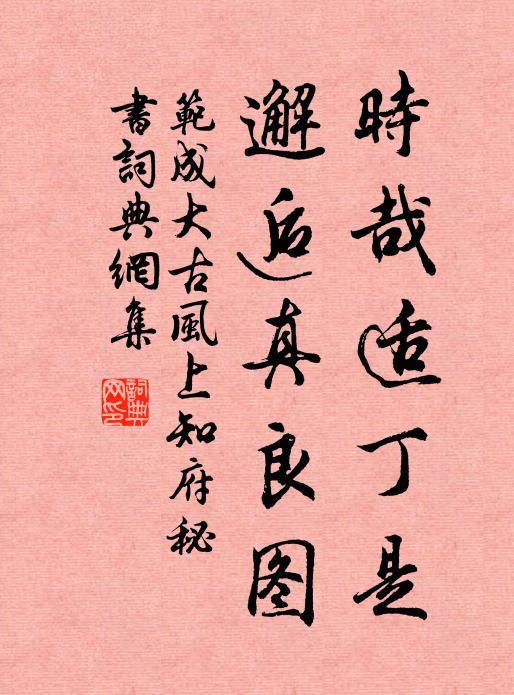 時哉适丁是
邂逅真良图
範成大古風上知府秘
書詞典網集
詞典
网印